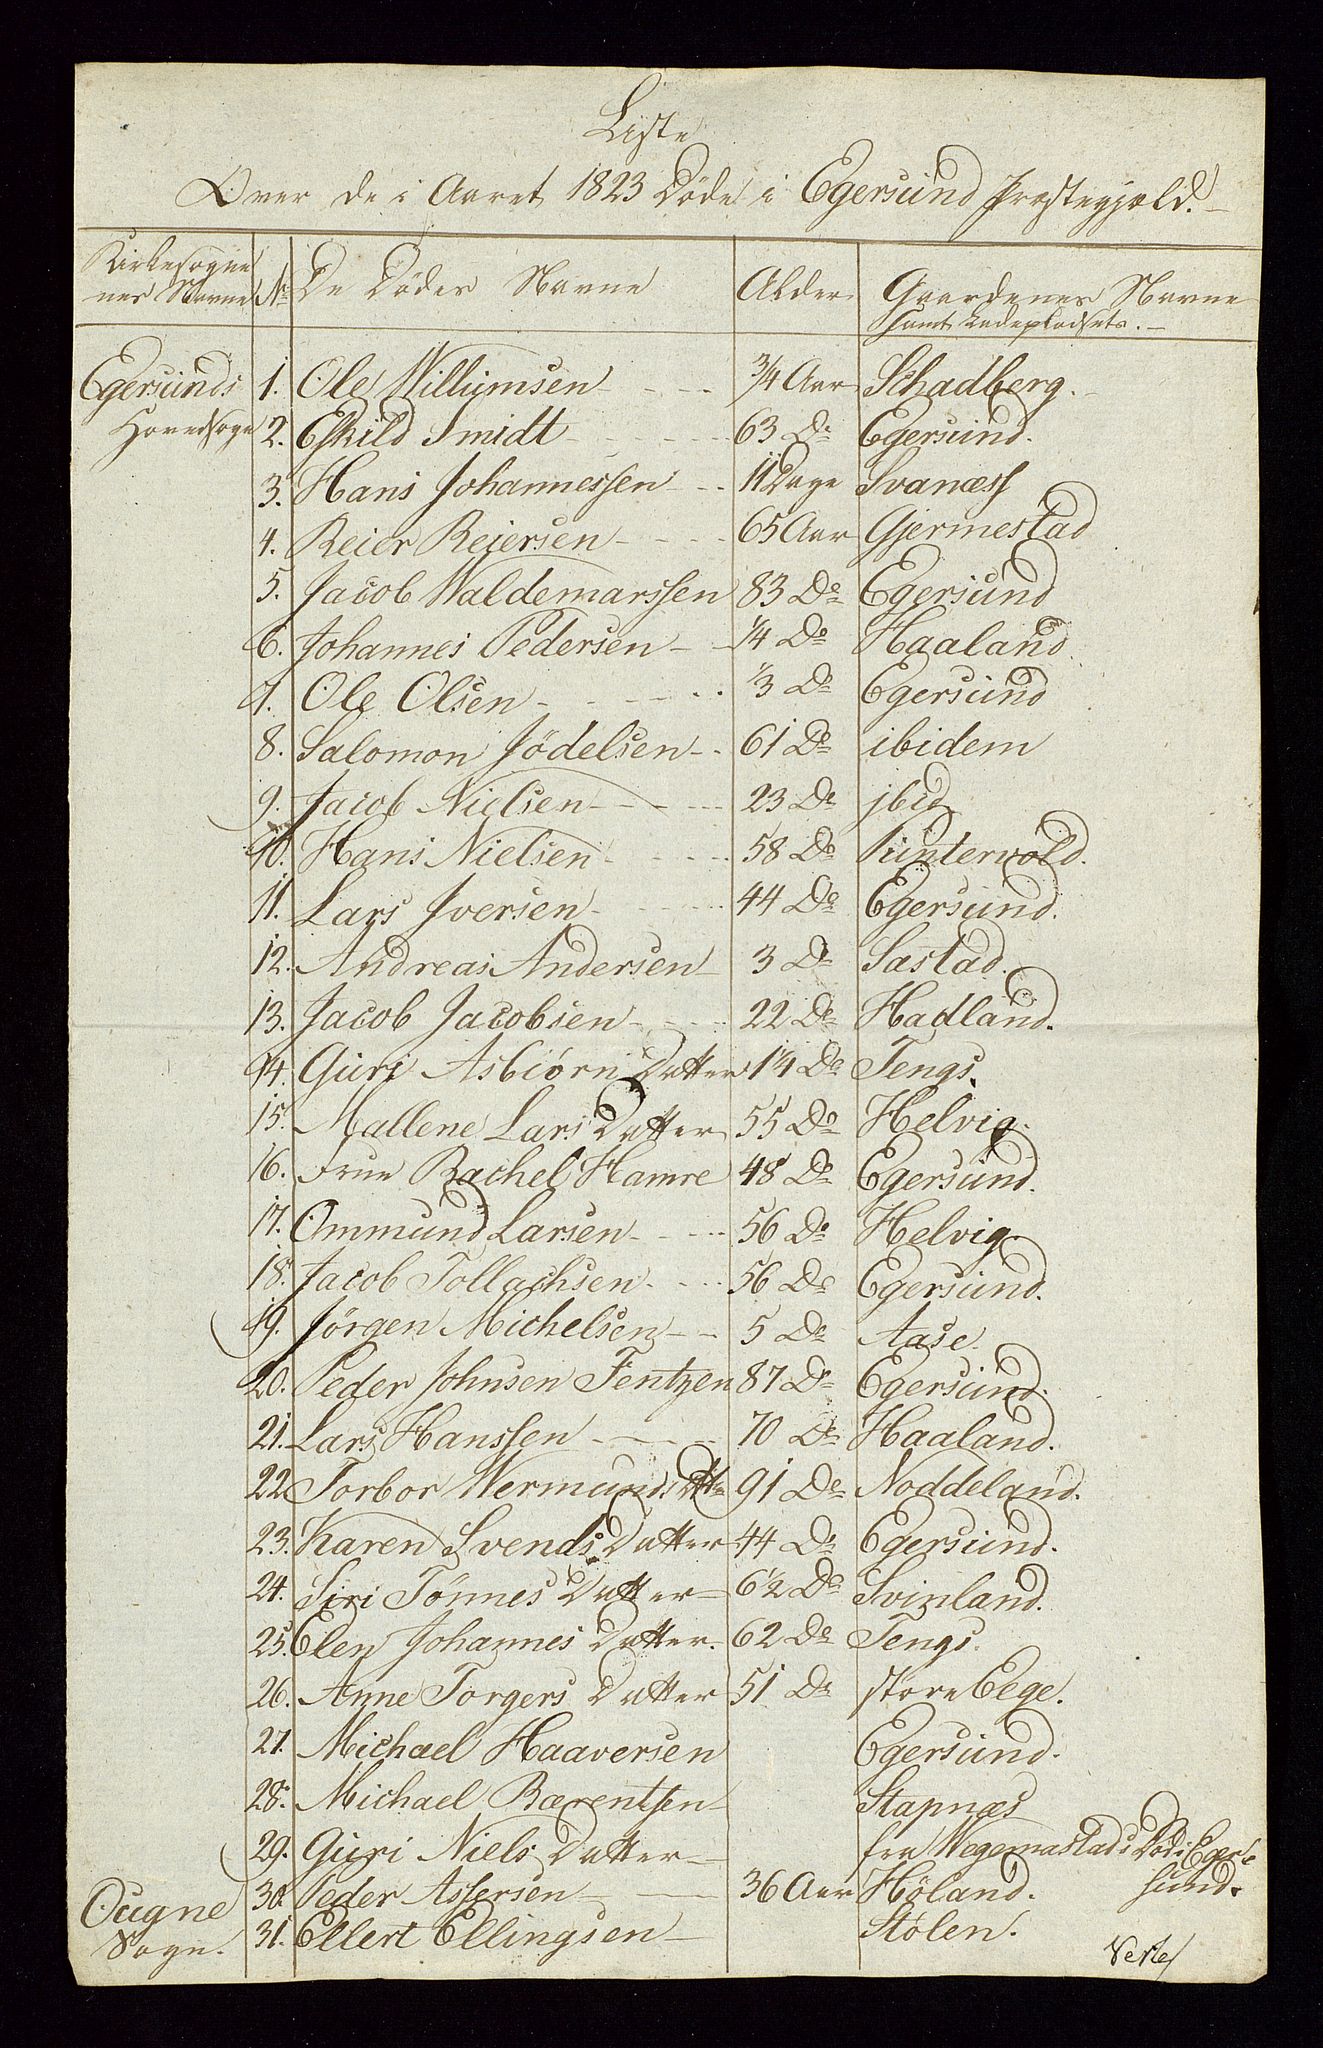 Liste
Over de i Aaret 1823 Døde i Egersund Præstegjæld.
Kirkesogne
nes Navne No De Dødes Navne Alder Gaardenes Navne
samt Ladepladsets.
Egersunds 1. Ole Willumsen 3/4 Aar Skadberg.
Hovedsogn 2. Eskild Smidt 63 Do Egersund.
3. Hans Johannessen 11 Dage Svanæss
4. Reier Reiersen 65 Aar Gjermestad
5. Jacob Waldemarssen 83 Do Egersund
6. Johannes Pedersen 1/4 Do Haaland
7. Ole Olsen 1/3 Do Egersund
8. Salomon Jödelsen 61 Do ibidem
9. Jacob Nielsen 23 Do jbid
10. Hans Nielsen 58 Do Puntervold.
11. Lars Iversen 44 Do Egersund.
12. Andreas Andersen 3 Do Sastad.
13. Jacob Jacobsen 22 Do Hadland.
14. Guri Asbiørn Datter 1 1/4 Do Tengs.
15. Mallene Lars Datter 55 Do Helvig.
16. Frue Rachel Hamre 48 Do Egersund.
17. Ommund Larsen 56 Do Helvig.
18. Jacob Tollachsen 56 Do Egersund.
19. Jørgen Michelsen 5 Do Aase.
20. Peder Johnsen Fentzen 87 Do Egersund.
21. Lars Hanssen 70 Do Haaland.
22. Torbor Wermunds Dttr 91 Do Noddeland.
23. Karen Svends Datter 44 Do Egersund.
24. Siri Tønnes Datter 6 1/2 Do Svinland.
25. Elen Johannes Datter. 62 Do Tengs.
26. Anne Torgers Datter 51 Do störe Eege.
27. Michael Haaversen Egersund.
28. Michael Bærentsen Stapnæs
29. Guri Niels Datter fra Wegemastad Död i Eger
sund.
Ougne 30. Peder Assersen 36 Aar Höland.
Sogn. 31. Ellert Ellingsen Stølen.
Verte